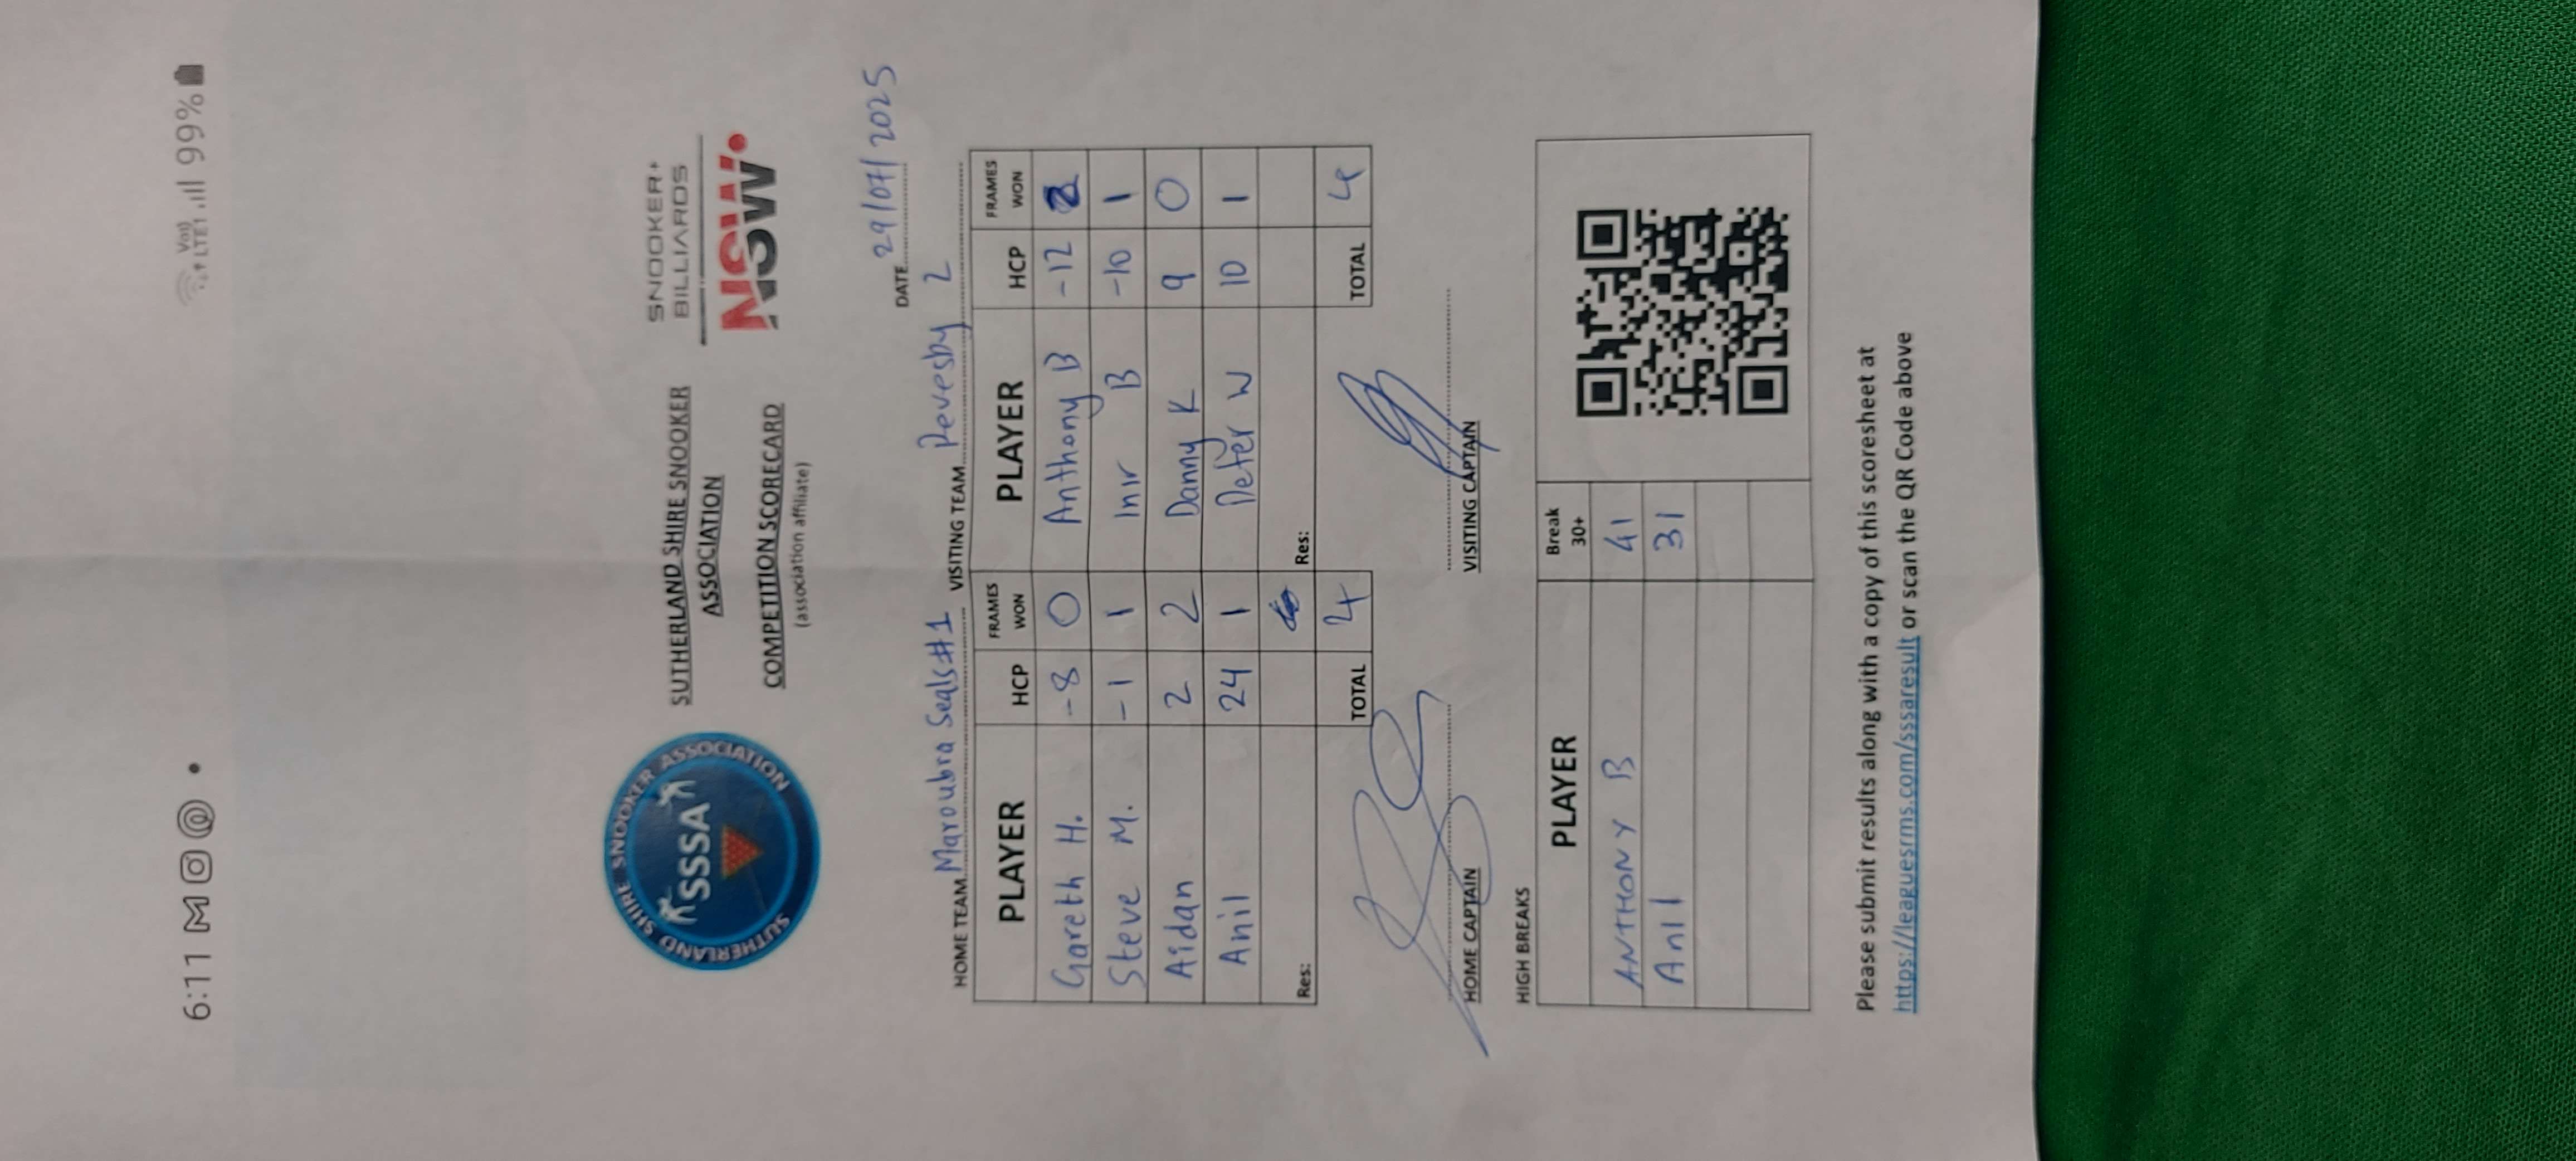 6:11
VoI) LTE1 99%
SUTHERLAND SHIRE SNOOKER ASSOCIATION
SSSA
SUTHERLAND SHIRE SNOOKER
ASSOCIATION
COMPETITION SCORECARD
(association affiliate)
SNOOKER+
BILLIARDS
NSW
DATE 29/07/2025
HOME TEAM Maroubra Seals#1 VISITING TEAM Pevesby 2
PLAYER HCP FRAMES WON PLAYER HCP FRAMES WON
Gareth H. -8 0 Anthony B -12 2
Steve M. -1 1 B -10 1
Aidan 2 2 Danny K 9 0
Anil 24 1 Peter W 10 1
Res: Res:
TOTAL 4 TOTAL 4
HOME CAPTAIN VISITING CAPTAIN
HIGH BREAKS
PLAYER Break 30+
ANTHONY B 41
Anil 31
Please submit results along with a copy of this scoresheet at
https://leaguesrms.com/sssaresult or scan the QR Code above